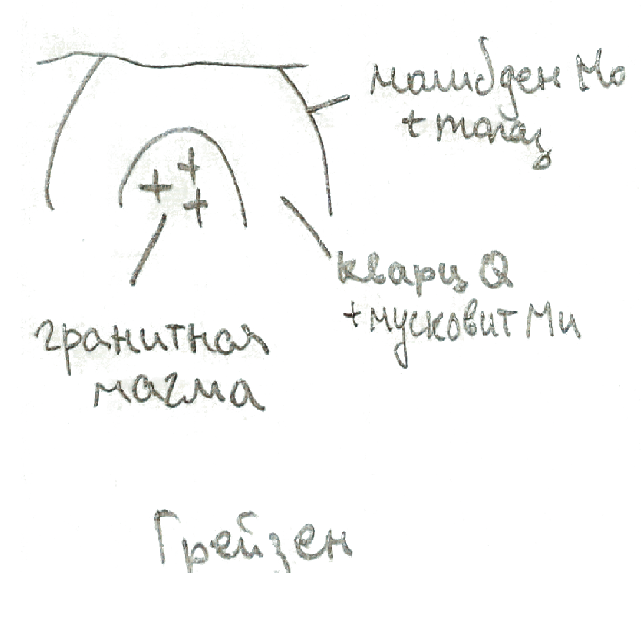 молибден Мо
+ топаз
кварц Q
+ мусковит Ми
гранитная
магма
Грейзен